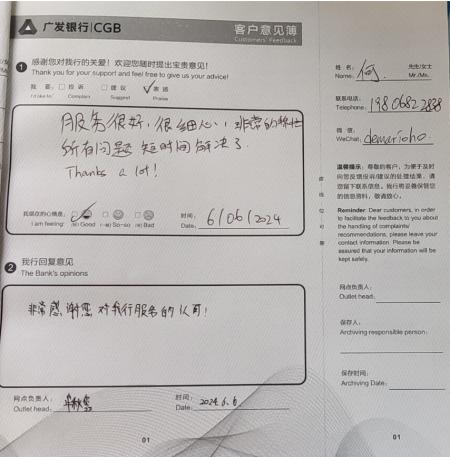 广发银行|CGB
客户意见簿
Customers' Feedback
1 感谢您对我行的关爱！欢迎您随时提出宝贵意见！
Thank you for your support and feel free to give us your advice!
我 要： □ 投 诉 □ 建 议 ☑ 表 扬
I'd like to: Complain Suggest Praise
服务很好，很细心，非常的
所有问题 短时间 解决了.
Thanks a lot!
我现在的心情是： (好) Good (一般) So-so (差) Bad
I am feeling:
时间：
Date: 6/06/2024
2 我行回复意见
The Bank's opinions
非常感谢您对我行服务的认可！
网点负责人：
Outlet head:
时间：
Date: 2024.6.6
01
姓 名： 何 先生/女士
Name: Mr./Ms.
联系电话：
Telephone:
微 信：
WeChat:
温馨提示：尊敬的客户，为便于及时
向您反馈投诉/建议的处理结果，请
您留下联系信息。我行将妥善保管您
的信息资料，敬请放心。
Reminder: Dear customers, in order
to facilitate the feedback to you about
the handling of complaints/
recommendations, please leave your
contact information. Please be
assured that your information will be
kept safely.
网点负责人：
Outlet head:
保存人：
Archiving responsible person:
保存时间：
Archiving Date:
01